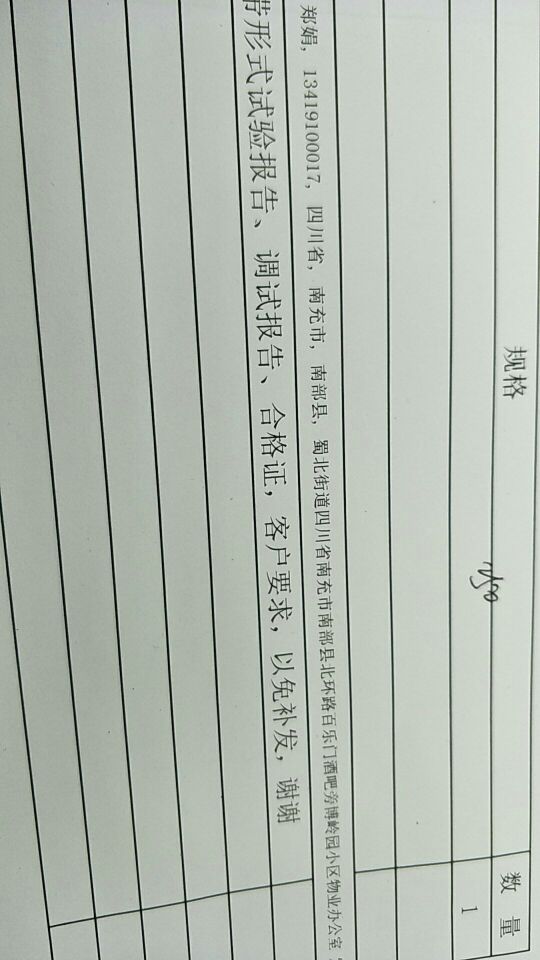 规格 数量
1
郑娟，13419100017，四川省，南充市，南部县，蜀北街道四川省南充市南部县北环路百乐门酒吧旁博岭园小区物业办公室
节形式试验报告、调试报告、合格证，客户要求，以免补发，谢谢